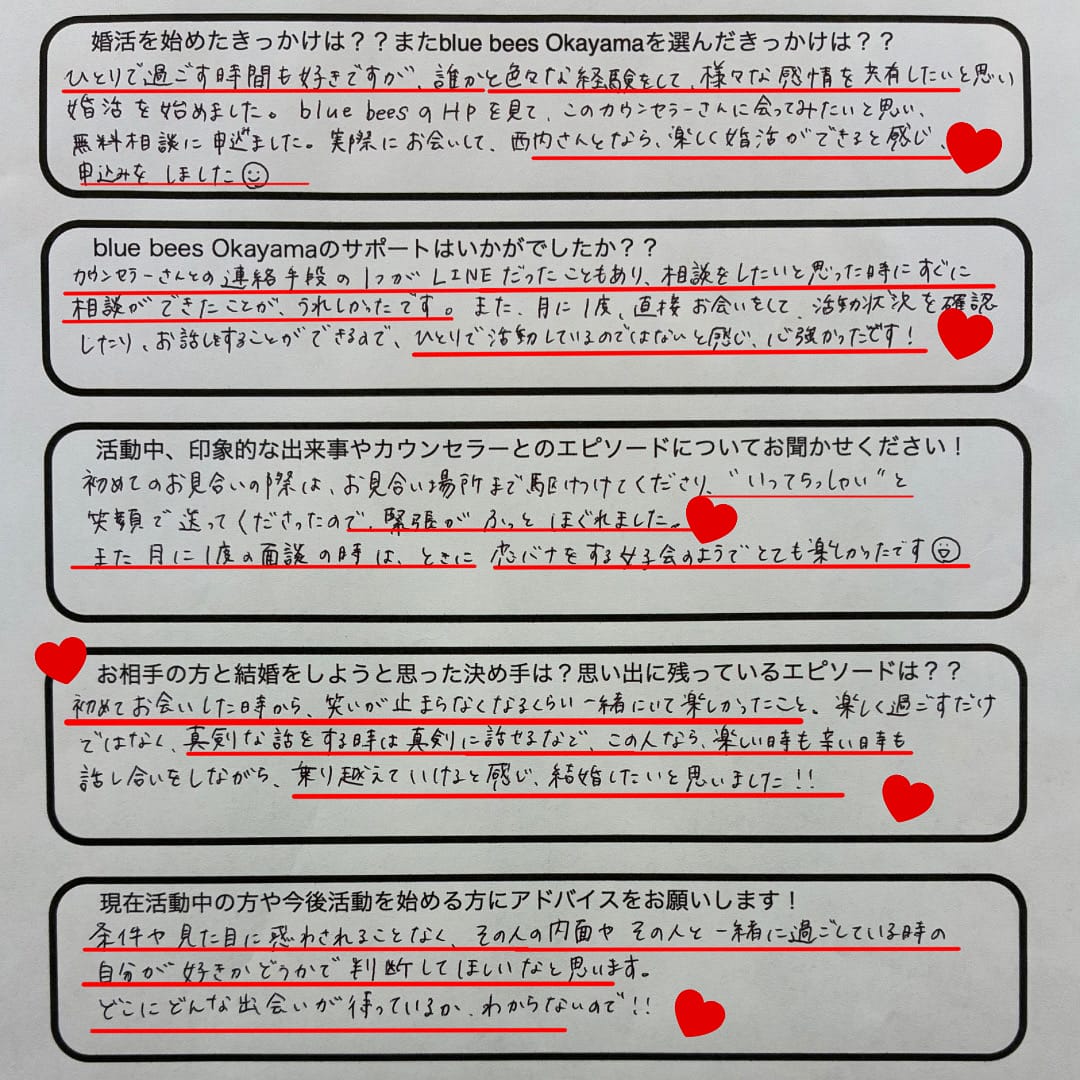 婚活を始めたきっかけは？？またblue bees Okayamaを選んだきっかけは？？
ひとりで過ごす時間も好きですが、誰かと色々な経験をして、様々な感情を共有したいと思い
婚活を始めました。blue beesのHPを見て、このカウンセラーさんに会ってみたいと思い、
無料相談に申込ました。実際にお会いして、西内さんとなら、楽しく婚活ができると感じ、
申込みをしました
blue bees Okayamaのサポートはいかがでしたか？？
カウンセラーさんとの連絡手段の1つがLINEだったこともあり、相談をしたいと思った時にすぐに
相談ができたことが、うれしかったです。また、月に1度、直接お会いをして、活動状況を確認
したり、お話しをすることができるので、ひとりで活動しているのではないと感じ、心強かったです！
活動中、印象的な出来事やカウンセラーとのエピソードについてお聞かせください！
初めてのお見合いの際は、お見合い場所まで駆けつけてくださり、"いってらっしゃい"と
笑顔で送ってくださったので、緊張がふっとほぐれました。
また月に1度の面談の時は、ときに恋バナをする女子会のようでとても楽しかったです
お相手の方と結婚をしようと思った決め手は？思い出に残っているエピソードは？？
初めてお会いした時から、笑いが止まらなくなるくらい一緒にいて楽しかったこと。楽しく過ごすだけ
ではなく、真剣な話をする時は真剣に話せるなど、この人なら、楽しい時も辛い時も
話し合いをしながら、乗り越えていけると感じ、結婚したいと思いました!!
現在活動中の方や今後活動を始める方にアドバイスをお願いします！
条件や見た目に惑わされることなく、その人の内面やその人と一緒に過ごしている時の
自分が好きかどうかで判断してほしいなと思います。
どこにどんな出会いが待っているか、わからないので!!